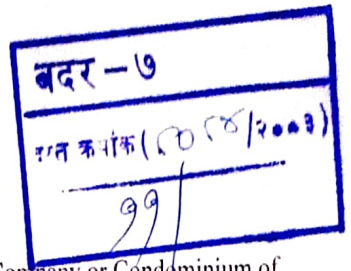 बदर - ७
क्रमांक ( /२००३)
११
Company or Condominium of